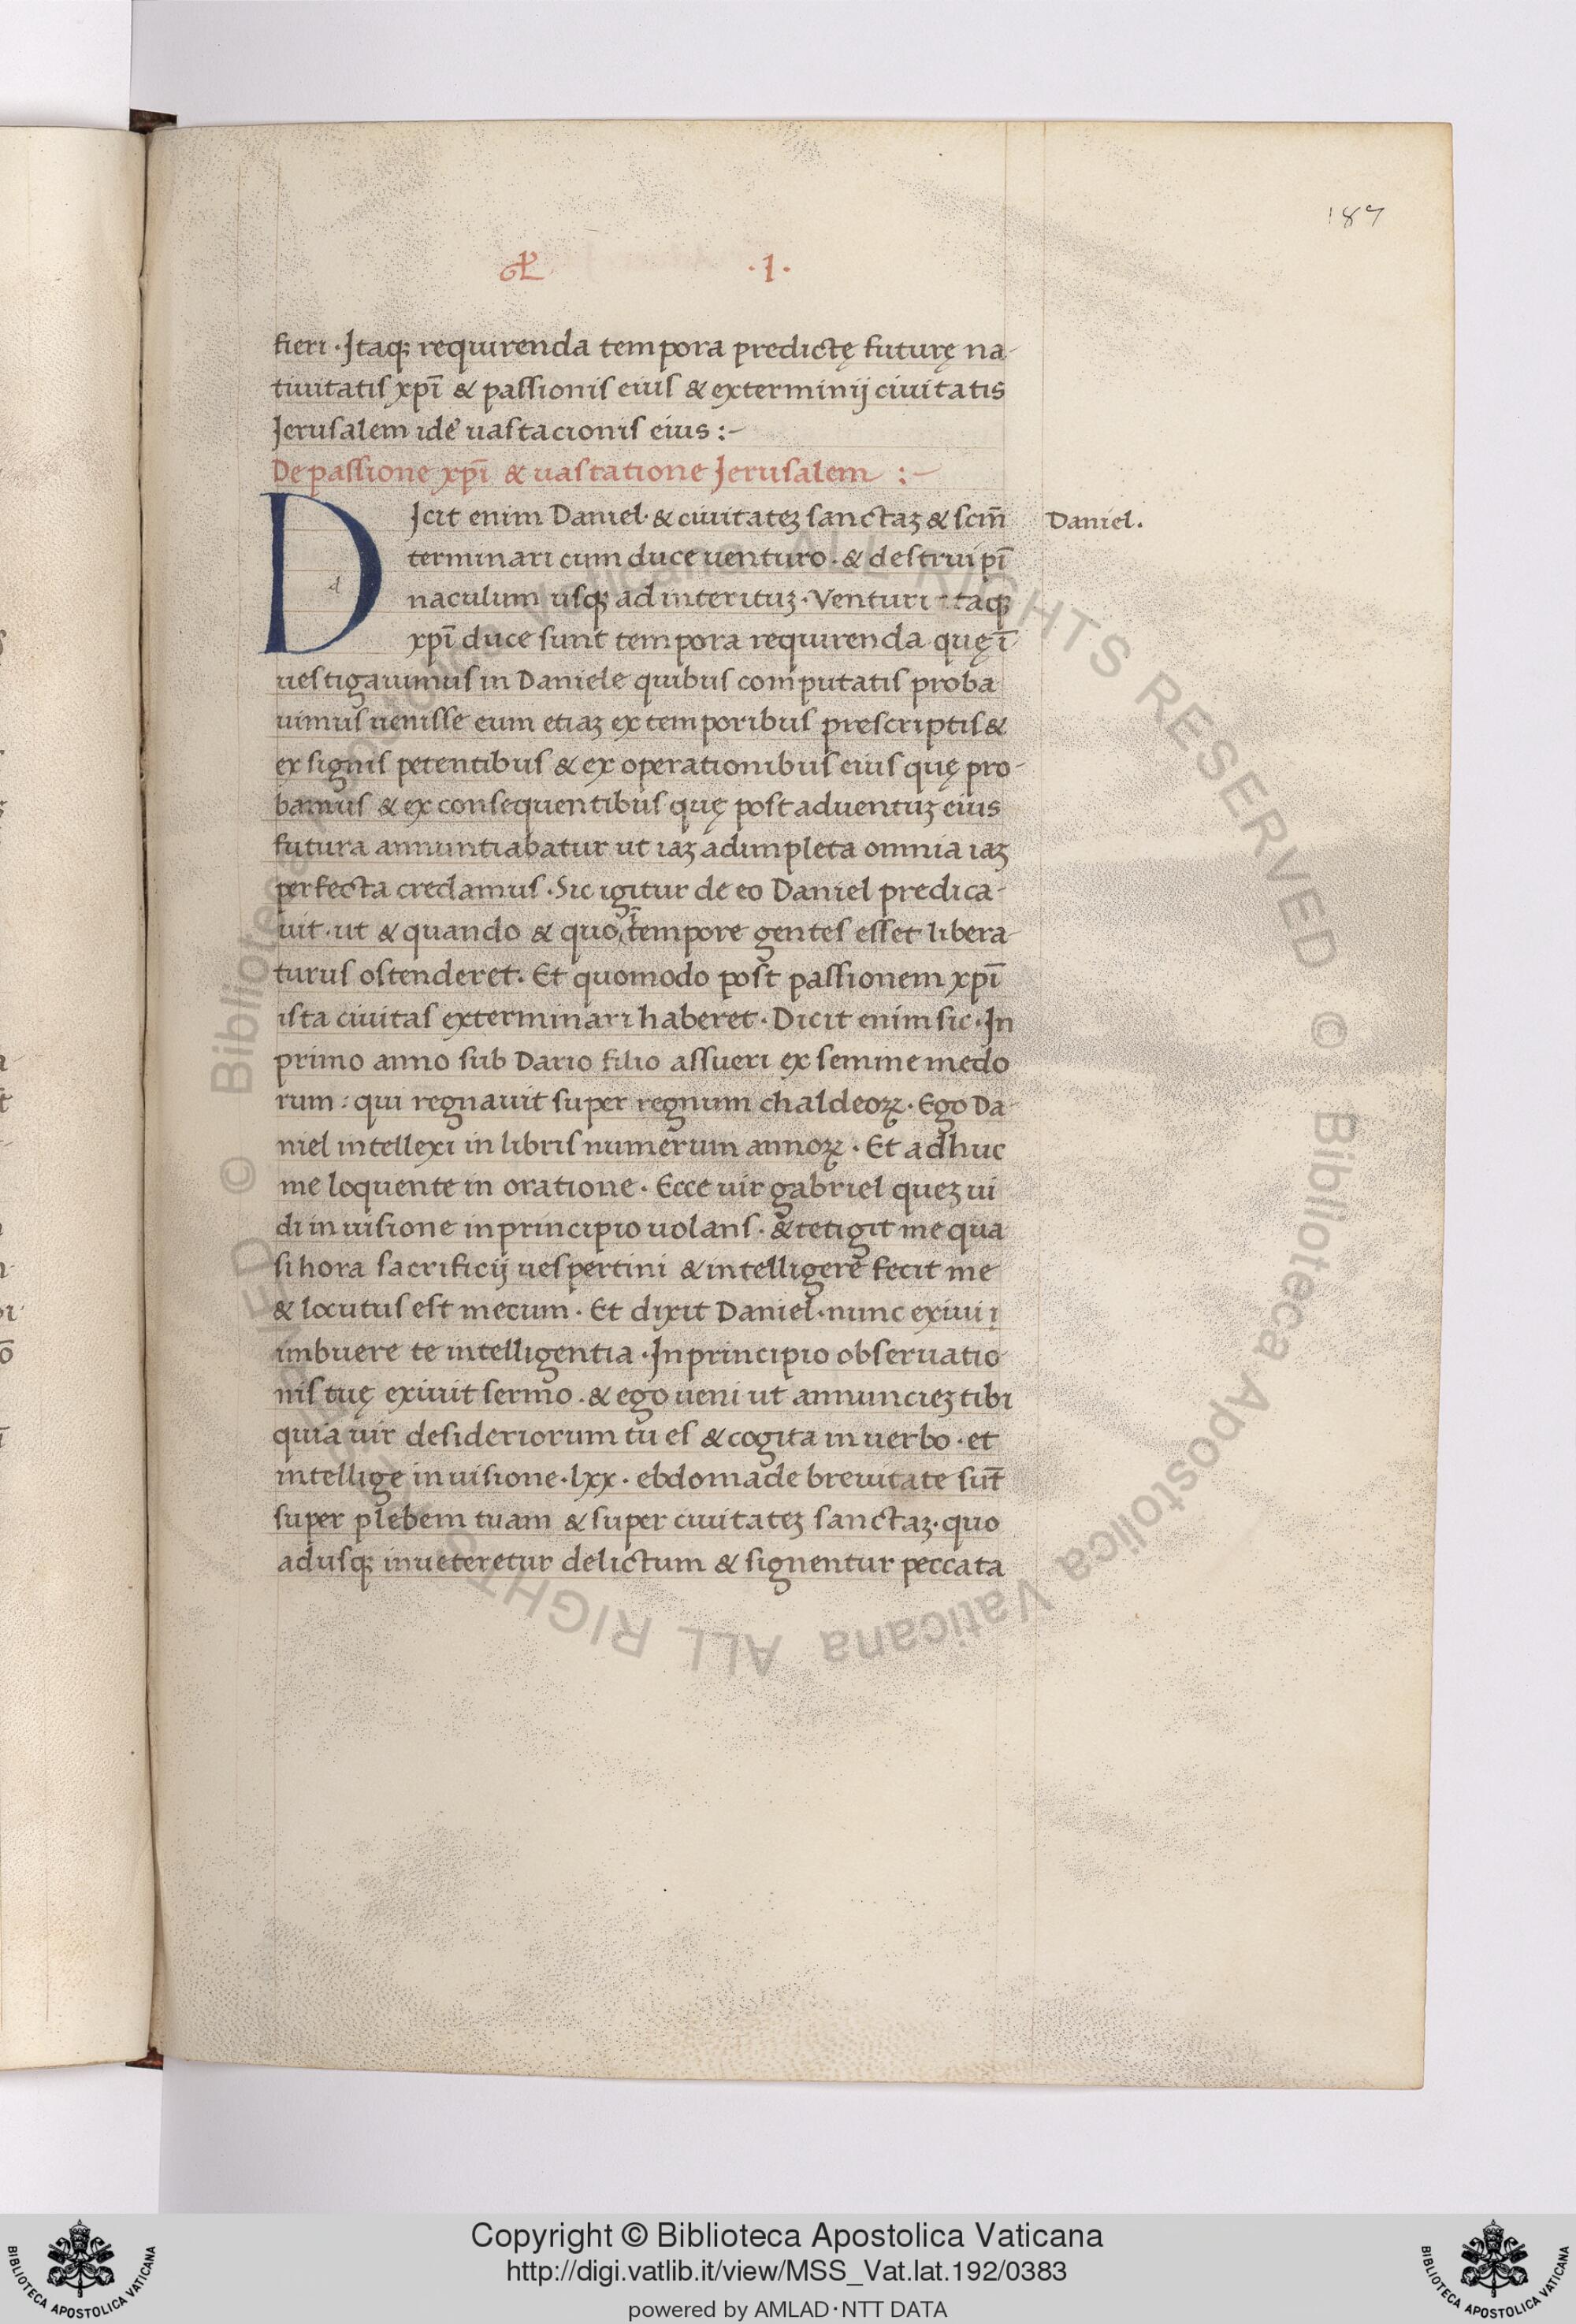 187
·1·
fieri · Itaqꝫ requirenda tempora predictę futurę na-
tiuitatis xpī & passionis eius & exterminij ciuitatis
Ierusalem idē uastacionis eius :-
De passione xpī & uastatione Ierusalem :-
DIcit enim Daniel · & ciuitateꝫ sanctaꝫ & scm̄
Daniel.
terminari cum duce uenturo · & destrui pī
naculum usqꝫ ad interituꝫ · Venturi itaqꝫ
xpī duce sunt tempora requirenda quę ī
uestigauimus in Daniele quibus computatis proba
uimus uenisse eum etiaꝫ ex temporibus prescriptis &
ex signis petentibus & ex operationibus eius quę pro-
bamus & ex consequentibus quę post aduentuꝫ eius
futura annuntiabatur ut iaꝫ adimpleta omnia iaꝫ
perfecta credamus · Sic igitur de eo Daniel predica-
uit · ut & quando & quo ī tempore gentes esset libera-
turus ostenderet · Et quomodo post passionem xpī
ista ciuitas exterminari haberet · Dicit enim sic · In
primo anno sub Dario filio assueri ex semine medo
rum : qui regnauit super regnum chaldeoꝝ · Ego Da-
niel intellexi in libris numerum annoꝝ · Et adhuc
me loquente in oratione · Ecce uir gabriel queꝫ ui
di in uisione in principio uolans · & tetigit me qua
si hora sacrificij uespertini & intelligere fecit me
& locutus est mecum · Et dixit Daniel · nunc exiui i
imbuere te intelligentia · In principio obseruatio
nis tuę exiuit sermo · & ego ueni ut annuncieꝫ tibi
quia uir desideriorum tu es & cogita in uerbo · et
intellige in uisione · lxx · ebdomade breuitate sūt
super plebem tuam & super ciuitateꝫ sanctaꝫ · quo
adusqꝫ inueteretur delictum & signentur peccata
© Biblioteca Apostolica Vaticana ALL RIGHTS RESERVED © Biblioteca Apostolica Vaticana ALL RIGHTS RESERVED
Copyright © Biblioteca Apostolica Vaticana
http://digi.vatlib.it/view/MSS_Vat.lat.192/0383
powered by AMLAD·NTT DATA
BIBLIOTECA APOSTOLICA VATICANA
BIBLIOTECA APOSTOLICA VATICANA